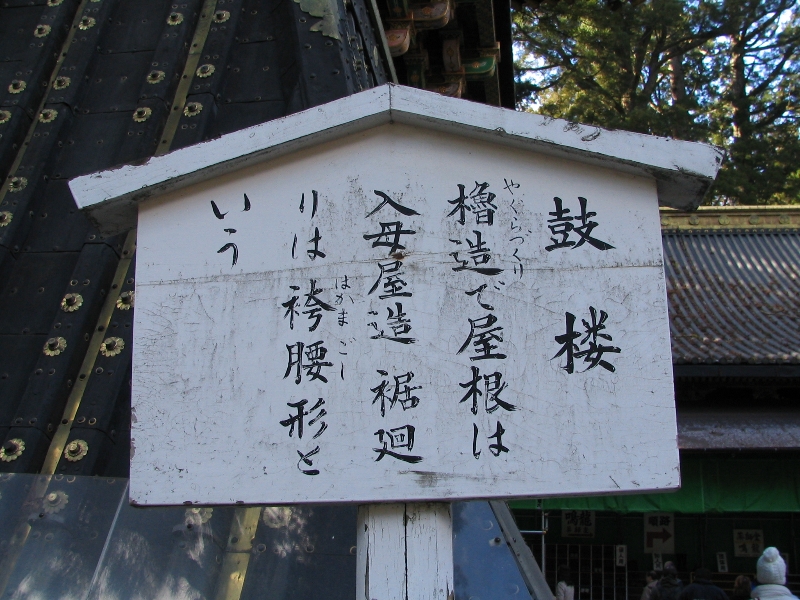 鼓楼
櫓造で屋根は
やぐらづくり
入母屋造 裾廻
りは袴腰形と
はかまごし
いう